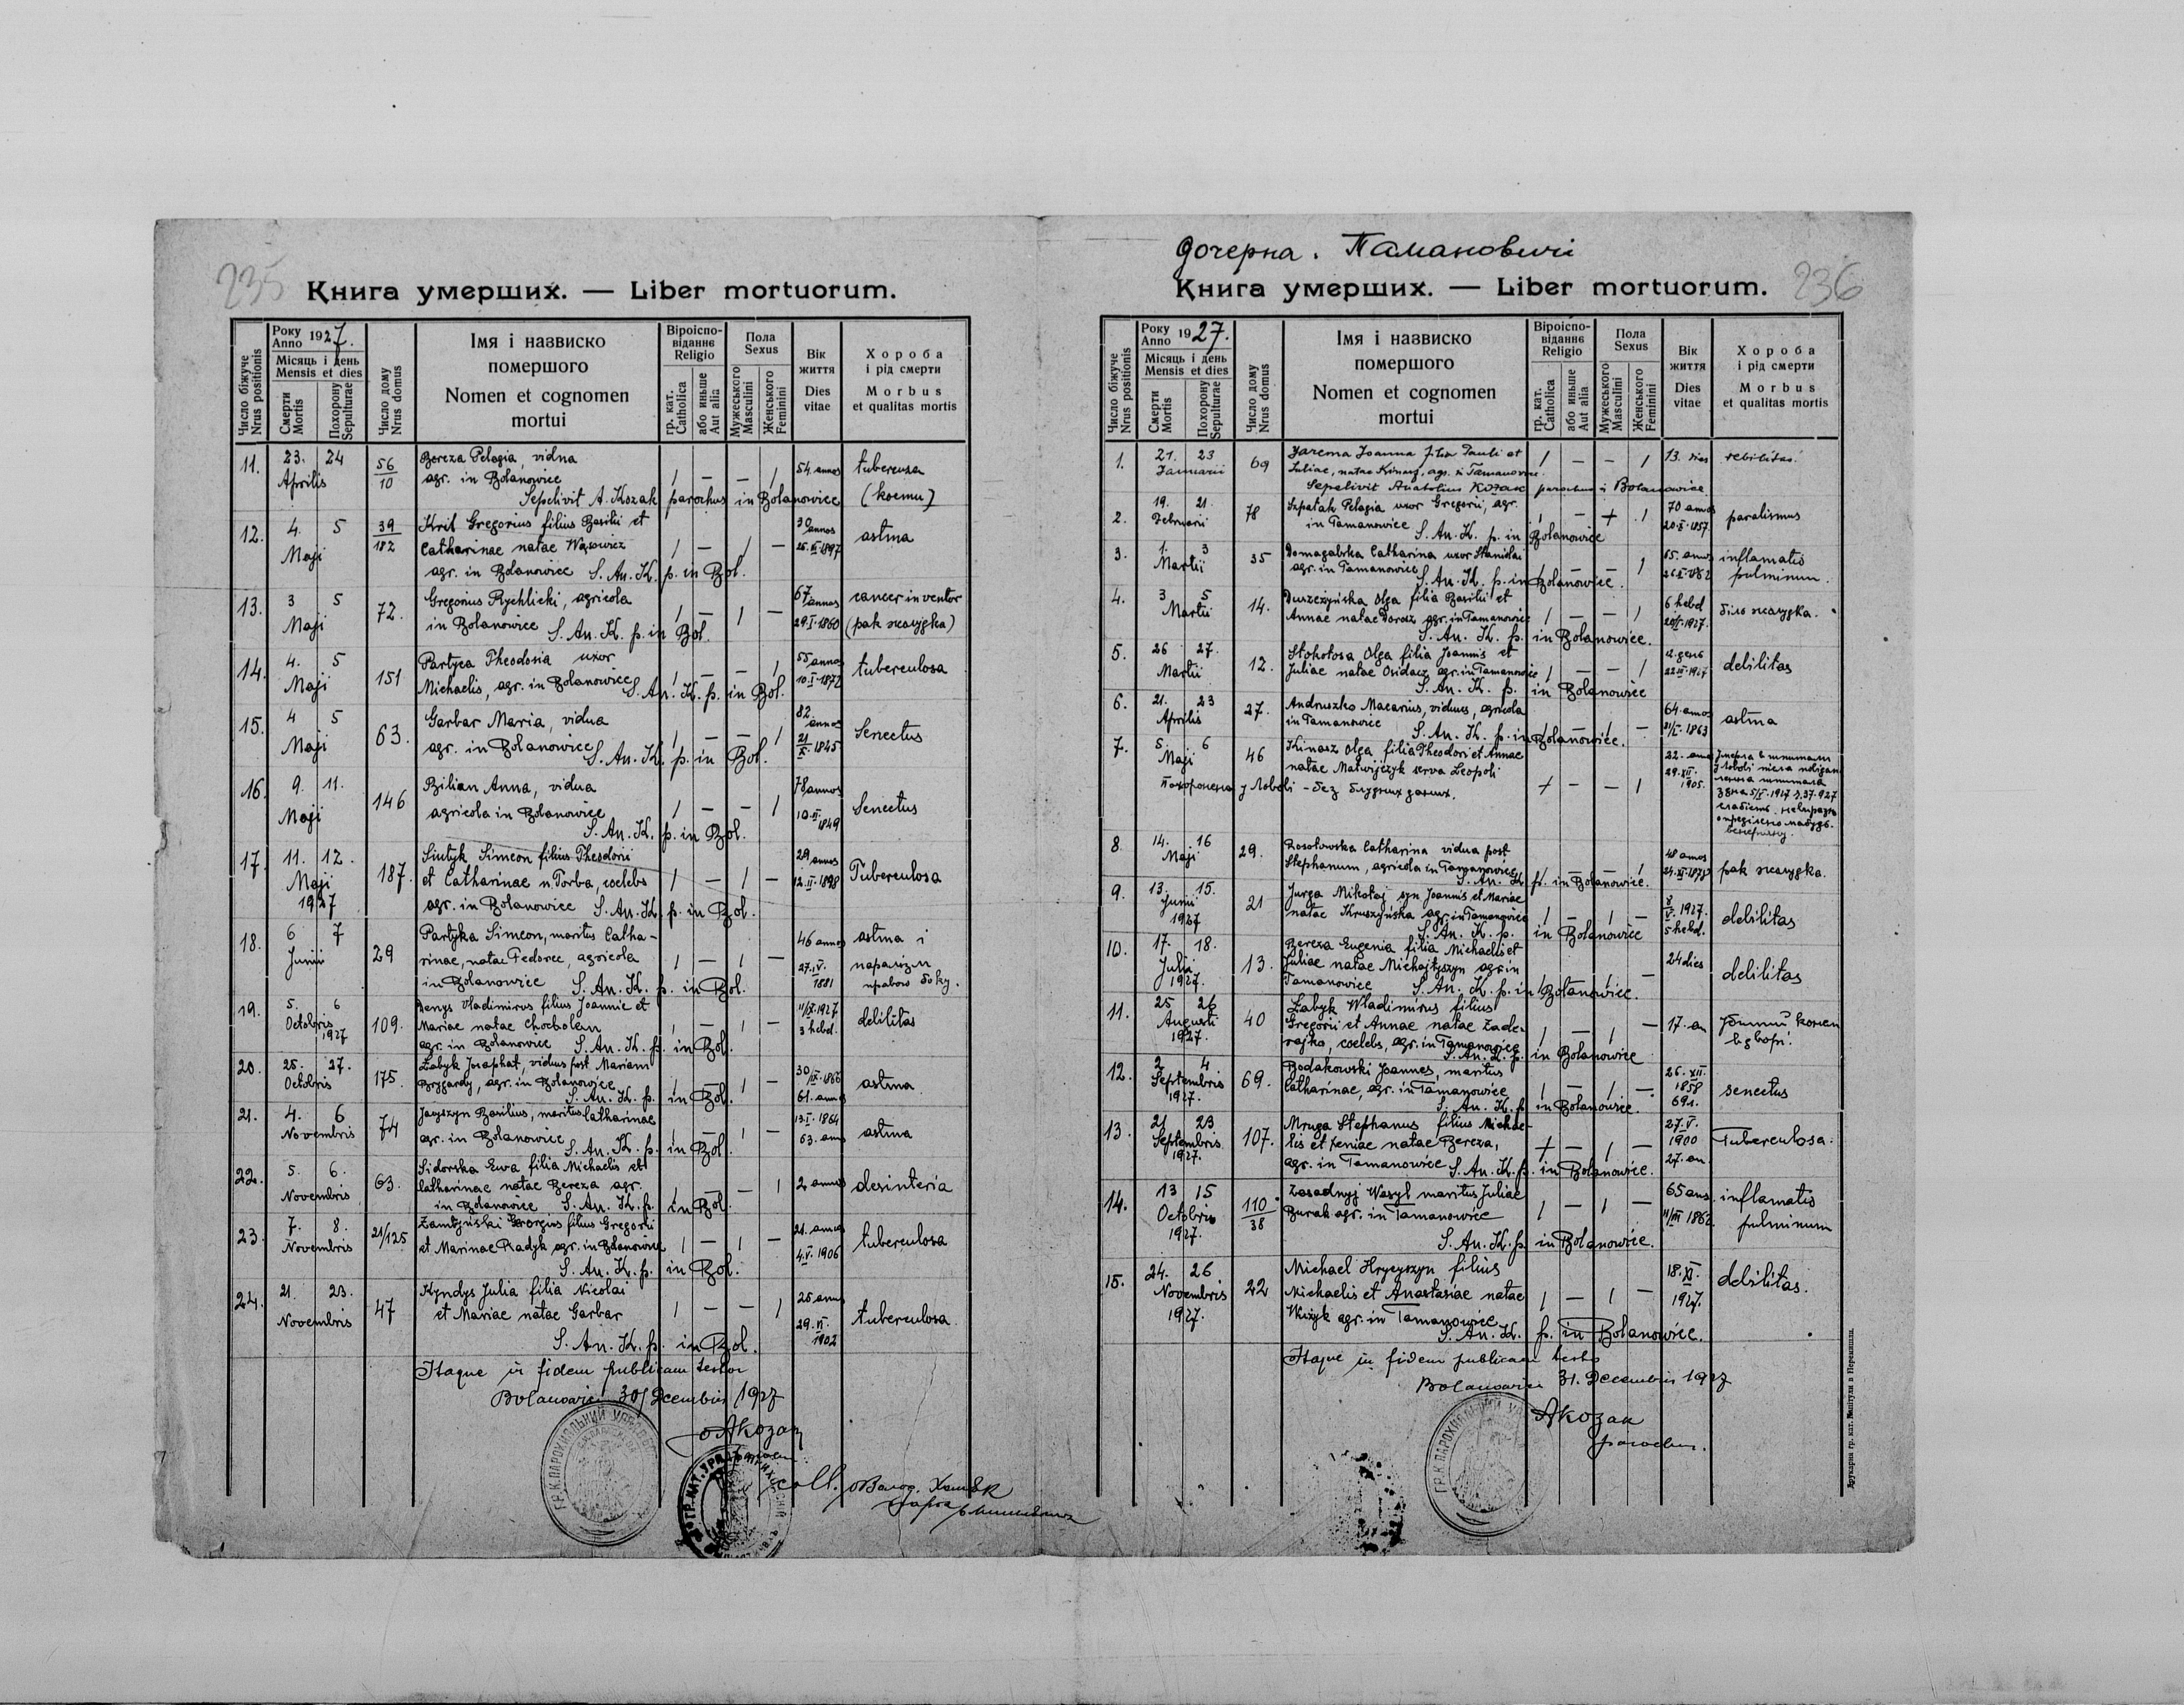 235
Книга умерших. — Liber mortuorum.
Число біжуче
Nrus positionis
Року
Anno 1927.
Місяць і день
Mensis et dies
Смерти
Mortis
Похорону
Sepulturae
Число дому
Nrus domus
Імя і назвиско
помершого
Nomen et cognomen
mortui
Віроіспо-
віданнє
Religio
гр. кат.
Catholica
або иньше
Aut alia
Пола
Sexus
Мужеського
Masculini
Женського
Feminini
Вік
життя
Dies
vitae
Хороба
і рід смерти
Morbus
et qualitas mortis
11. 23. 24 Aprilis 56/10
Bereza Pelagia, vidua
agr. in Bolanowice 1 — — 1 54 annos
Sepelivit A. Kozak parochus in Bolanowice
12. 4. 5 Maji 39/182
Krit Gregorius filius Basilii et
Catharinae natae Wąsowicz 1 — 1 — 30 annos astma
agr. in Bolanowice S. An. K. p. in Bol.
13. 3 5 Maji 72.
Gregorius Rychlicki, agricola
in Bolanowice 1 — 1 — 67 annos 29.I.1860 cancer in venter
(рак жолудка)
S. An. K. p. in Bol.
14. 4. 5 Maji 151
Partyca Theodosia uxor
Michaelis, agr. in Bolanowice 1 — — 1 55 annos 10.I.1872 tuberculosa
S. An. K. p. in Bol.
15. 4 5 Maji 63.
Garbar Maria, vidua
agr. in Bolanowice 1 — — 1 82 annos 21/X.1845 Senectus
S. An. K. p. in Bol.
16. 9. 11. Maji 146
Bilian Anna, vidua
agricola in Bolanowice 1 — — 1 78 annos 1849 Senectus
S. An. K. p. in Bol.
17. 11. 12. Maji 1927 187.
Siutyk Simeon filius Theodorii
et Catharinae n. Torba, coelebs 1 — 1 — 29 annos 12.II.1898 Tuberculosa
agr. in Bolanowice S. An. K. p. in Bol.
18. 6 7 Junii 29
Partyka Simeon, maritus Catha-
rinae, natae Fedorec, agricola 1 — 1 — 46 annos 27.IV.1881 astma і
параліжм
правого боку.
in Bolanowice S. An. K. p. in Bol.
19. 5. 6 Octobris 1927 109.
Denys Vladimirus filius Joannie et
Mariae natae Chocholan 1 — 1 — 11/IX.1927 3 hebd. debilitas
agr. in Bolanowice S. An. K. p. in Bol.
20. 25. 27. Octobris 175.
Żabyk Josaphat, viduus post Mariam
agr. in Bolanowice 1 — 1 — 30/IX.1866 61. annos astma
S. An. K. p. in Bol.
21. 4. 6 Novembris 74
Jacyszyn Basilius, maritus Catharinae
agr. in Bolanowice 1 — 1 — 13.I.1864 63. ans astma
S. An. K. p. in Bol.
22. 5. 6. Novembris 63.
Sidorska Ewa filia Michaelis et
Catharinae natae Bereza agr. 1 — — 1 2 annos desinteria
in Bolanowice S. An. K. p. in Bol.
23. 7. 8. Novembris 21/125
Georgius filius Gregorii
et Marinae Radyk agr. in Bolanowice 1 — 1 — 21. annos 4.V.1906 tuberculosa
S. An. K. p. in Bol.
24. 21. 23. Novembris 47
Kyndys Julia filia Nicolai
et Mariae natae Garbar 1 — — 1 25 annos 29.VI.1902 tuberculosa
S. An. K. p. in Bol.
Itaque in fidem publicam testor
Bolanowice 30/ Decembris 1927
AKozak
coll.
236
дочерна. Тамановичі
Книга умерших. — Liber mortuorum.
Число біжуче
Nrus positionis
Року
Anno 1927.
Місяць і день
Mensis et dies
Смерти
Mortis
Похорону
Sepulturae
Число дому
Nrus domus
Імя і назвиско
помершого
Nomen et cognomen
mortui
Віроіспо-
віданнє
Religio
гр. кат.
Catholica
або иньше
Aut alia
Пола
Sexus
Мужеського
Masculini
Женського
Feminini
Вік
життя
Dies
vitae
Хороба
і рід смерти
Morbus
et qualitas mortis
1. 21. 23 Januarii 69
Jarema Joanna filia Pauli et
Juliae, natae Kinasz, agr. in Tamanowice 1 — — 1 13. dies debilitas
Sepelivit Anatolius Kozak parochus in Bolanowice
2. 19. 21. Februarii 78
Szpatak Pelagia uxor Gregorii, agr.
in Tamanowice 1 — + 1 70 annos 20.X.1857 paralismus
S. An. K. p. in Bolanowice
3. 1. 3 Martii 35
Domagalska Catharina uxor Stanislai
agr. in Tamanowice 1 — — 1 65. annos inflamatio
pulminum.
S. An. K. p. in Bolanowice.
4. 3 5 Martii 14.
Duszczyńska Olga filia Basilii et
Annae natae Dorosz agr. in Tamanowice 1 — — 1 6 hebd 20/I.1927. біль жолудка.
S. An. K. p. in Bolanowice.
5. 26 27. Martii 12.
Stokotosa Olga filia Joannis et
Juliae natae Osidacz agr. in Tamanowice 1 — — 1 22.III.1927 debilitas
S. An. K. p. in Bolanowice
6. 21. 23 Aprilis 27.
Andruszko Macarius, viduus, agricola
in Tamanowice 1 — 1 — 64 annos 21/I.1863 astma
S. An. K. p. in Bolanowice.
7. 5. 6 Maji 46
Kinasz Olga filia Theodori et Annae
natae Matwijczyk serva Leopoli + — — 1 22. ans 29.XII.1905.
Похоронена у Львові – без
8 14. 16 Maji 29.
Rosołowska Catharina vidua post
Stephanum, agricola in Tamanowice 1 — — 1 48 annos рак жолудка.
S. An. K. p. in Bolanowice.
9. 13. 15. Junii 1927 21
Jurga Mikołaj syn Joannis et Mariae
natae Kruszyńska agr. in Tamanowice 1 — 1 — 8/V.1927. 5 hebd. debilitas
S. An. K. p. in Bolanowice
10. 17. 18. Julii 1927. 13.
Bereza Eugenia filia Michaelis et
Juliae natae Michajłyszyn agr. in 24 dies debilitas
Tamanowice S. An. K. p. in Bolanowice.
11. 25 26 Augusti 1927. 40
Żabyk Wladimirus filius
Gregorii et Annae natae Zade-
rajko, coelebs, agr. in Tamanowice 1 — 1 — 17. an
S. An. K. p. in Bolanowice
12. 2 4 Septembris 1927. 69.
Rodakowski Joannes, maritus
Catharinae, agr. in Tamanowice 1 — 1 — 26.XII.1858 69 r. senectus
S. An. K. p. in Bolanowice.
13. 21 23 Septembris 1927. 107.
Mruga Stephanus filius Michae-
lis et Xeniae natae Bereza, + — 1 — 27.V.1900 27. an Tuberculosa.
agr. in Tamanowice S. An. K. p. in Bolanowice.
14. 13 15 Octobris 1927. 110/38
Zasadnyj Wasyl maritus Juliae
Burak agr. in Tamanowice 1 — 1 — 65 ans. 11/III 1862 inflamatio
pulminum
S. An. K. p. in Bolanowice.
15. 24. 26 Novembris 1927. 22
Michael Hrycyszyn filius
Michaelis et Anastasiae natae 1 — 1 — 18.XI.1927. debilitas.
agr. in Tamanowice
S. An. K. p. in Bolanowice.
Itaque in fidem publicam testor
Bolanowice 31. Decembris 1927
AKozak
parochus.